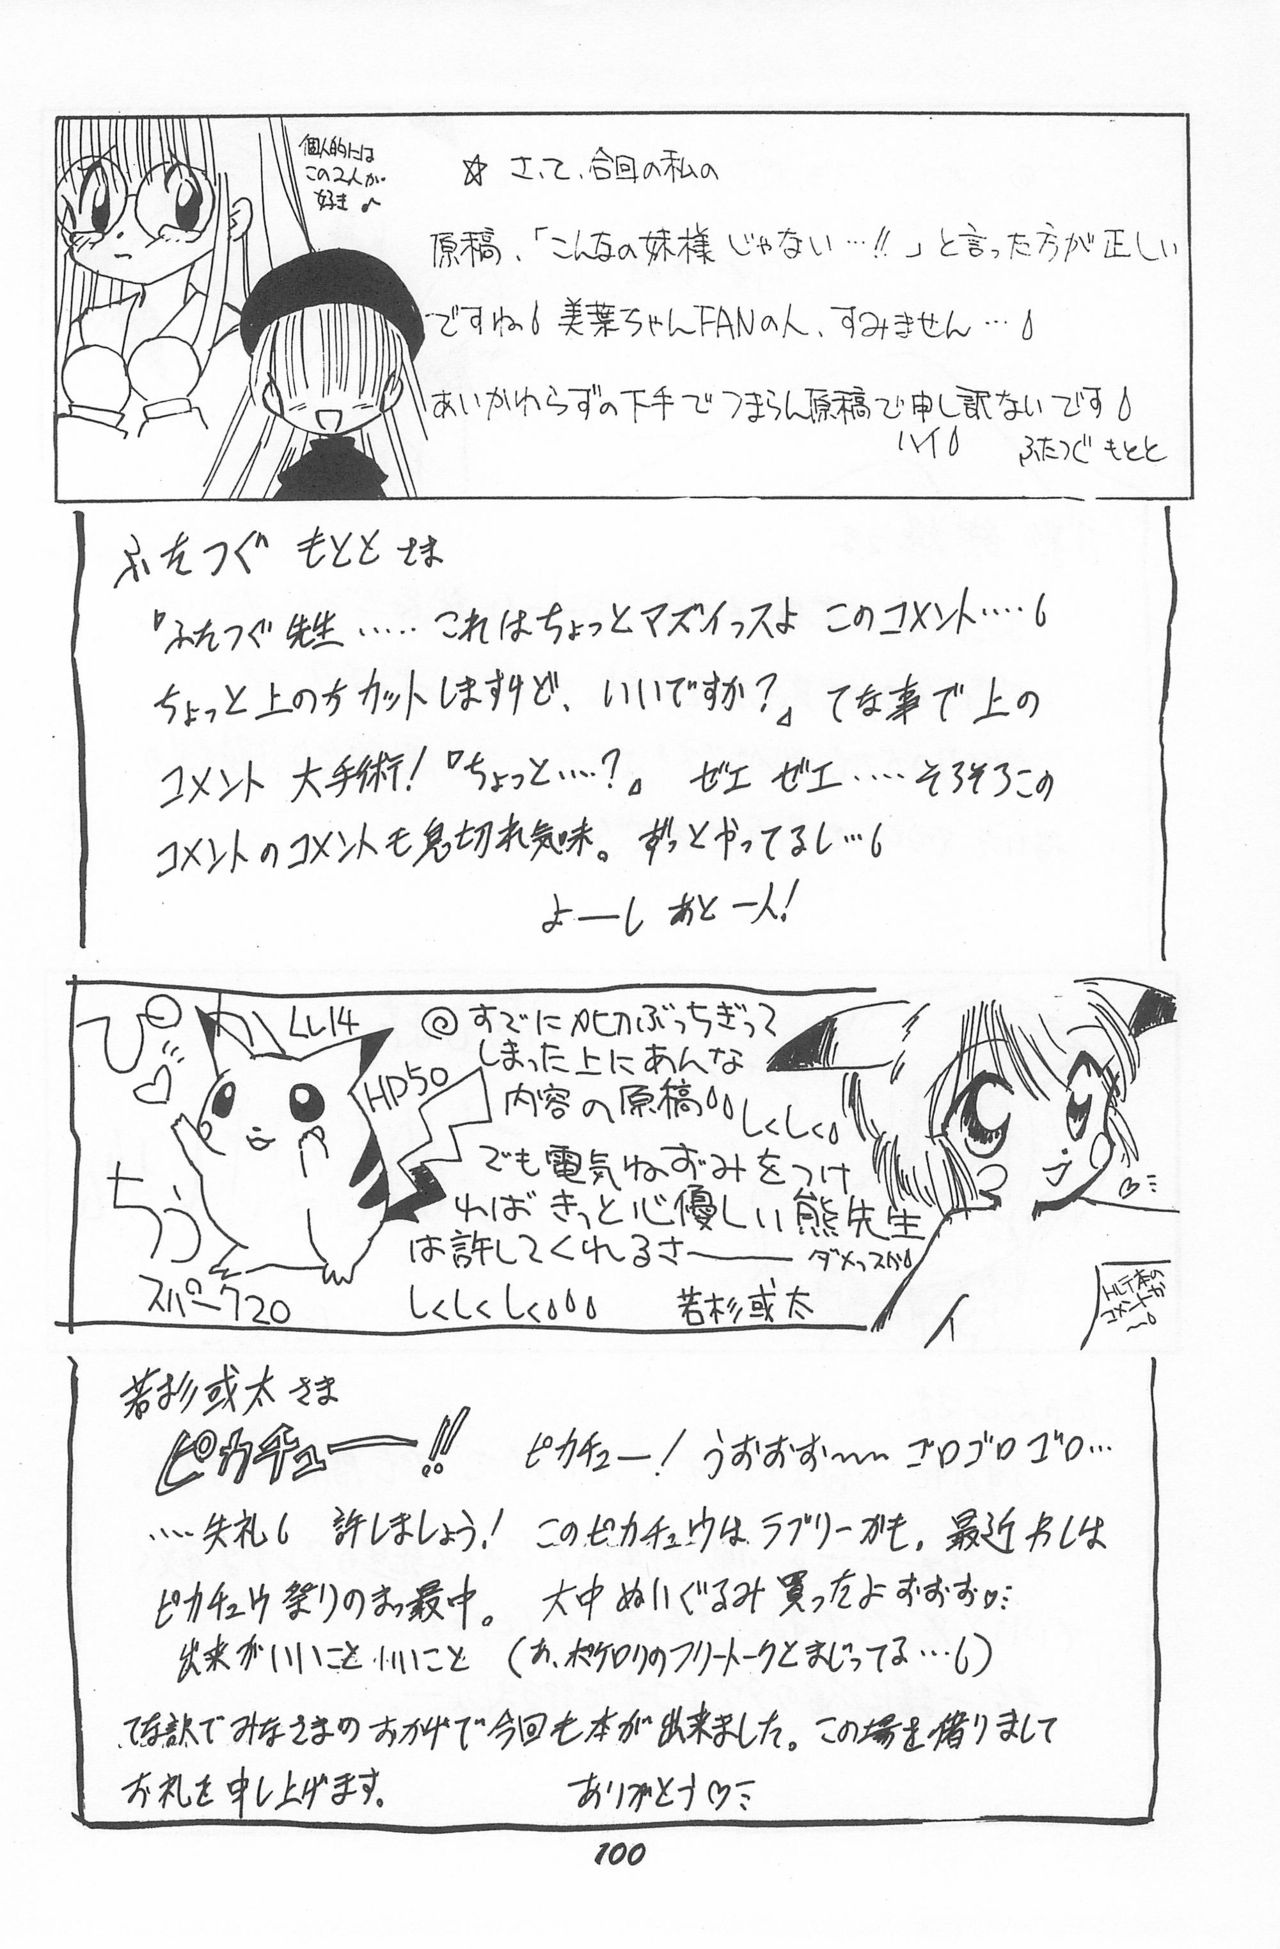 個人的には
この2人が
好き♪
☆ さて、今回の私の
原稿、「こんなの妹様じゃない…!!」と言った方が正しい
ですね 美葉ちゃんFANの人、すみません…
あいかわらずの下手でつまらん原稿で申し訳ないです
ハイ
ふたつぐ もとと
ふたつぐ もととさま
『ふたつぐ先生……これはちょっとマズイっスよ このコメント……
ちょっと上の方カットしますけど、いいですか?』てな事で上の
コメント 大手術!『ちょっと……?』 ゼエ ゼエ……そろそろこの
コメントのコメントも息切れ気味。ずっとやってるし…
よーし あと一人!
ぴか
ちう
LL14
HP50
スパーク20
◎すでに〆切ぶっちぎって
しまった上にあんな
内容の原稿
しくしく
でも電気ねずみをつけ
ればきっと心優しい熊先生
は許してくれるさ――
ダメっスか
しくしくしく
若杉或太
イ
トルテ本の
コメントか
〜
若杉或太さま
ピカチュー!!
ピカチュー! うおおおお〜〜 ゴロゴロゴロ…
……失礼 許しましょう! このピカチュウはラブリーかも。最近わしは
ピカチュウ祭りのまっ最中。 大中ぬいぐるみ買ったよおおお♡
出来がいいこといいこと (あ、ポケロリのフリートークとまじってる…)
てな訳でみなさまのおかげで今回も本が出来ました。この場を借りまして
お礼を申し上げます。 ありがとう♡
100